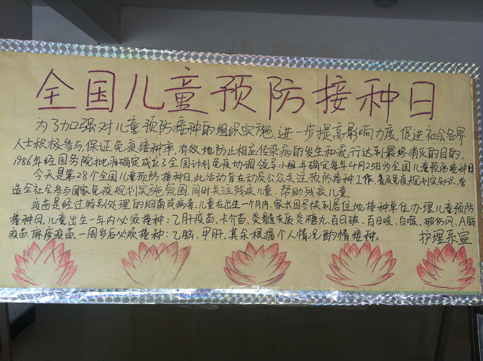 全国儿童预防接种日
为了加强对儿童预防接种的组织实施,进一步提高影响力度,促进社会各界
人士积极参与,保证免疫接种率,有效地防止相关传染病的发生和流行达到最终消灭的目的,
1986年经国务院批准确定成立了全国计划免疫协调领导小组并确定每年4月25日为全国儿童预防接种日
今天是第28个全国儿童预防接种日,此活动旨在动员公众关注预防接种工作,普及免疫规划知识,营
造全社会参与国家免疫规划实施氛围,同时关注残疾儿童,帮助残疾儿童。
疫苗是经过特别处理的细菌或病毒,儿童在出生一个月内,家长因尽快到居住地接种单位办理儿童预防
接种证,儿童出生一年内必须接种:乙肝疫苗、卡介苗、炎髓灰质炎糖丸,百白破、百日咳、白喉、破伤风、A脑
疫苗,麻疹疫苗、一周岁后必须接种:乙脑、甲肝,其余根据个人情况酌情接种。
护理系宣